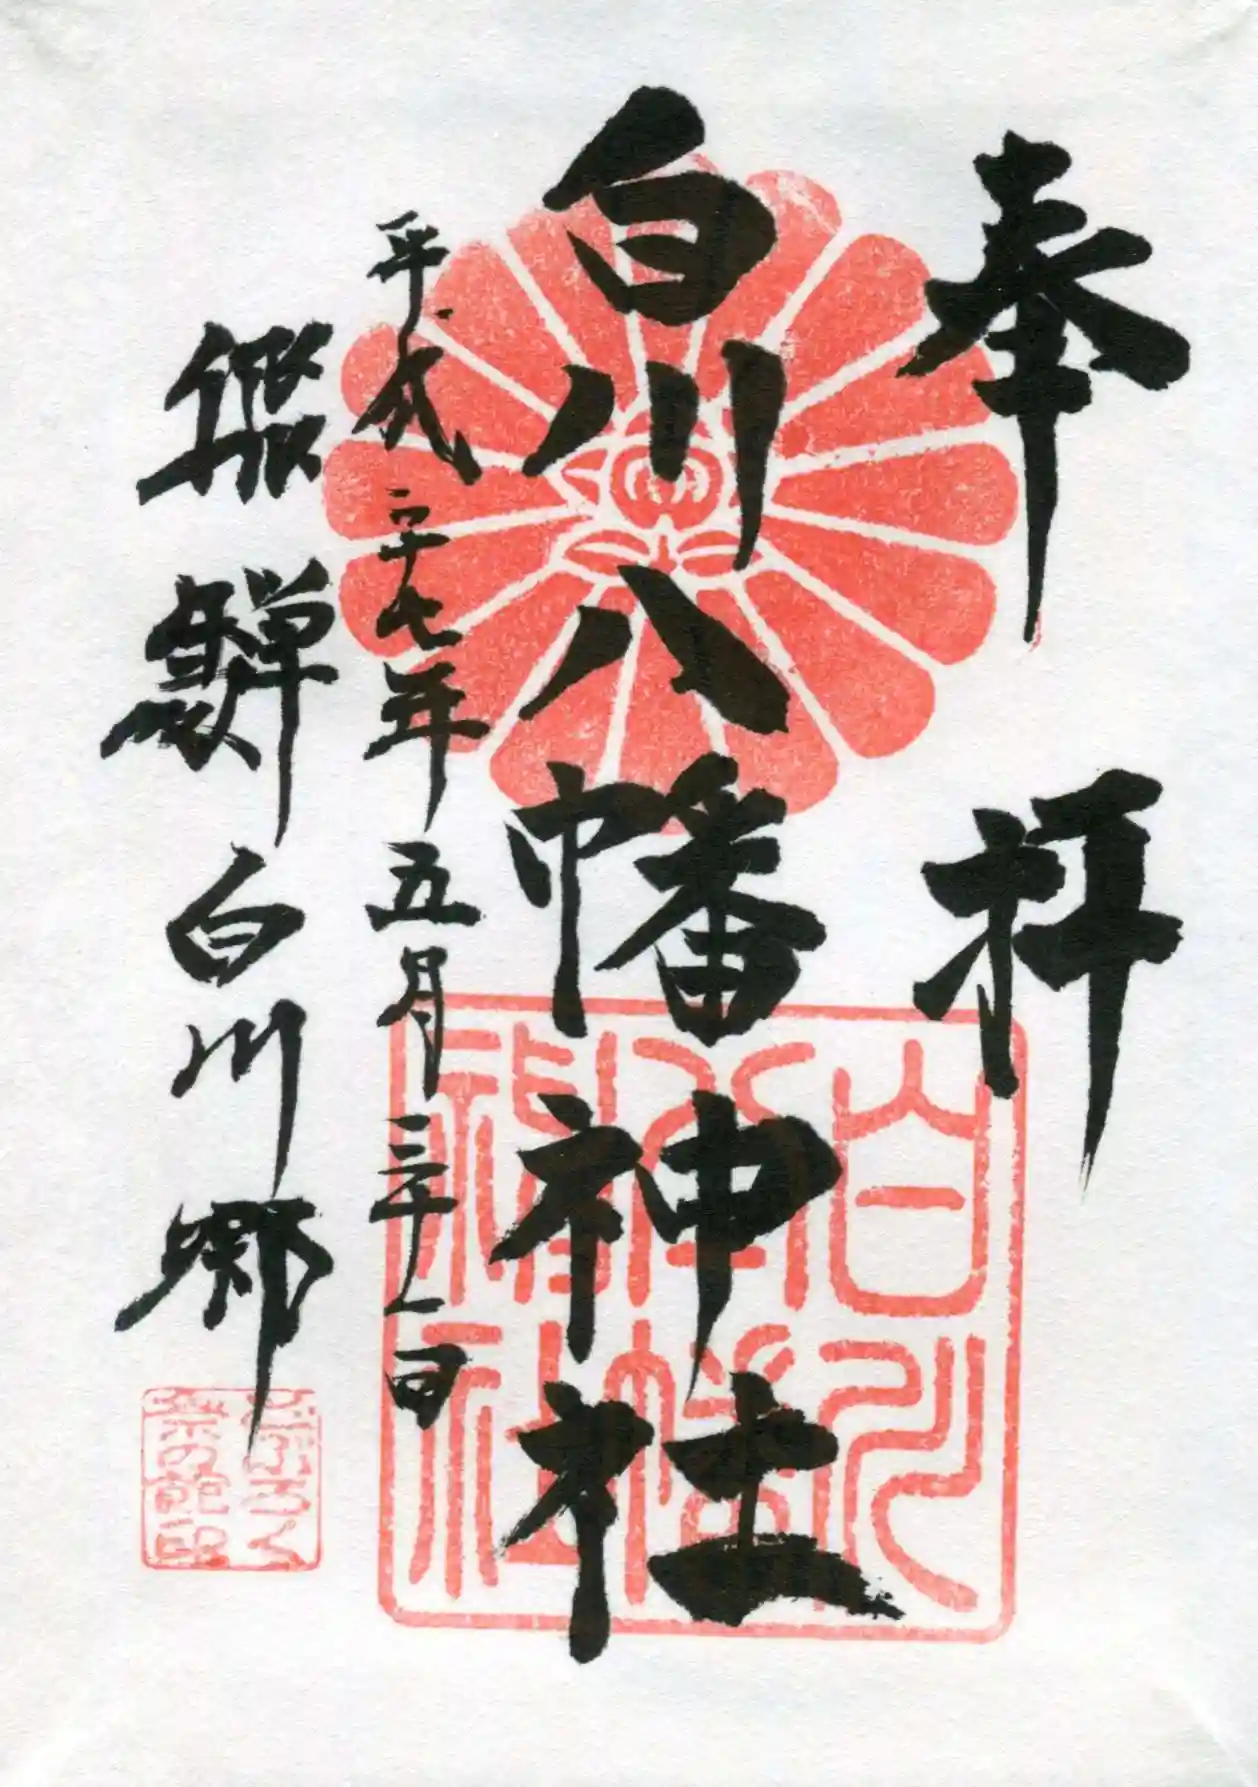 奉拝
白川八幡神社
平成二十七年五月三十一日
飛驒白川郷
白川八幡神社